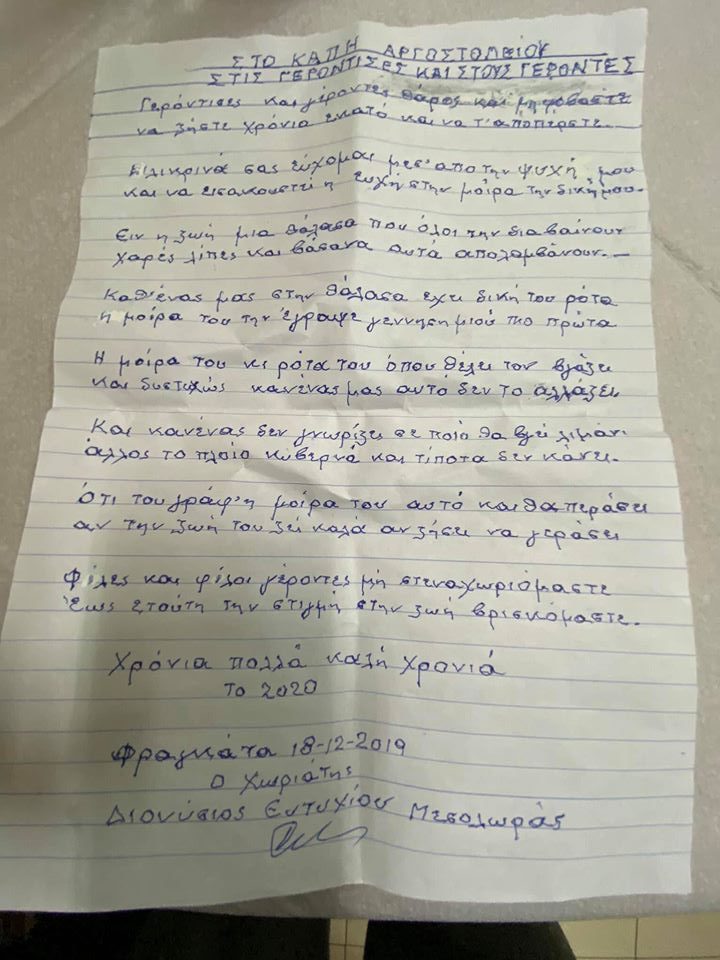 ΣΤΟ ΚΑΠΗ ΑΡΓΟΣΤΟΛΕΙΟΥ
ΣΤΙΣ ΓΕΡΟΝΤΙΣΕΣ ΚΑΙ ΣΤΟΥΣ ΓΕΡΟΝΤΕΣ
Γερόντισες και γέροντες θάρος και μη φοβάστε
να ζήστε χρόνια εκατό και να τ' αποπέρστε.
Ειλικρινά σας εύχομαι μεσ' απο την ψυχή μου
και να εισακουστεί η ευχή στην μοίρα την δική μου.
Ειν η ζωή μια θάλασα που όλοι την διαβαίνουν
χαρές λίπες και βάσανα αυτά απολαμβάνουν.
Καθ'ένας μας στην θάλασα έχει δική του ρότα
η μοίρα του την έγραψε γεννηση μιού πιο πρώτα
Η μοίρα του κι ρότα του όπου θέλει τον βγάζει
και δυστυχώς κανένας μας αυτο δεν το αλλάζει
Και κανένας δεν γνωρίζει σε ποιό θα βγεί λιμάνι
άλλος το πλοίο κυβερνά και τίποτα δεν κάνει.
Ότι του γράφ'η μοίρα του αυτό και θα περάσει
αν την ζωή του ζεί καλά αν ζήσει να γεράσει
Φίλες και φίλοι γέροντες μή στεναχωριόμαστε
έως ετούτη την στιγμή στην ζωή βρισκόμαστε.
Χρόνια πολλά καλή χρονιά
το 2020
Φραγκάτα 18-12-2019
Ο χωριάτης
Διονύσιος Ευτυχίου Μεσολωράς